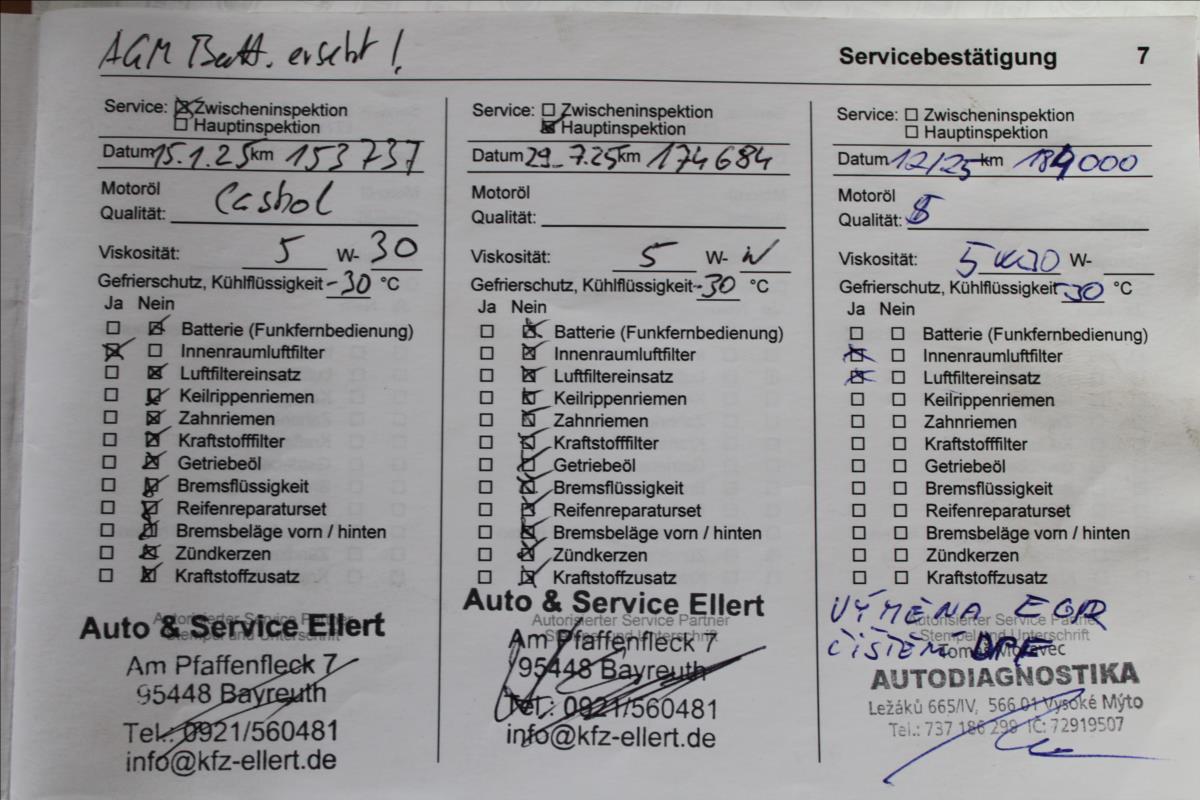 AGM Batt. ersetzt!
Servicebestätigung 7
Service: Zwischeninspektion
Hauptinspektion
Datum 15.1.25 km 153737
Motoröl
Qualität: Castrol
Viskosität: 5 W- 30
Gefrierschutz, Kühlflüssigkeit -30 °C
Ja Nein
Batterie (Funkfernbedienung)
Innenraumluftfilter
Luftfiltereinsatz
Keilrippenriemen
Zahnriemen
Kraftstofffilter
Getriebeöl
Bremsflüssigkeit
Reifenreparaturset
Bremsbeläge vorn / hinten
Zündkerzen
Kraftstoffzusatz
Autorisierter Service Partner
Stempel und Unterschrift
Auto & Service Ellert
Am Pfaffenfleck 7
95448 Bayreuth
Tel.: 0921/560481
info@kfz-ellert.de
Service: Zwischeninspektion
Hauptinspektion
Datum 29.7.25 km 174684
Motoröl
Qualität:
Viskosität: 5 W-
Gefrierschutz, Kühlflüssigkeit -30 °C
Ja Nein
Batterie (Funkfernbedienung)
Innenraumluftfilter
Luftfiltereinsatz
Keilrippenriemen
Zahnriemen
Kraftstofffilter
Getriebeöl
Bremsflüssigkeit
Reifenreparaturset
Bremsbeläge vorn / hinten
Zündkerzen
Kraftstoffzusatz
Auto & Service Ellert
Autorisierter Service Partner
Stempel und Unterschrift
Am Pfaffenfleck 7
95448 Bayreuth
Tel.: 0921/560481
info@kfz-ellert.de
Service: Zwischeninspektion
Hauptinspektion
Datum 12/25 km 184000
Motoröl
Qualität:
Viskosität: 5W30 W-
Gefrierschutz, Kühlflüssigkeit -30 °C
Ja Nein
Batterie (Funkfernbedienung)
Innenraumluftfilter
Luftfiltereinsatz
Keilrippenriemen
Zahnriemen
Kraftstofffilter
Getriebeöl
Bremsflüssigkeit
Reifenreparaturset
Bremsbeläge vorn / hinten
Zündkerzen
Kraftstoffzusatz
VÝMĚNA EGR
Autorisierter Service Partner
Stempel und Unterschrift
ČIŠTĚNÍ DPF
Tomáš Moravec
AUTODIAGNOSTIKA
Ležáků 665/IV, 566 01 Vysoké Mýto
Tel.: 737 186 299 IČ: 72919507